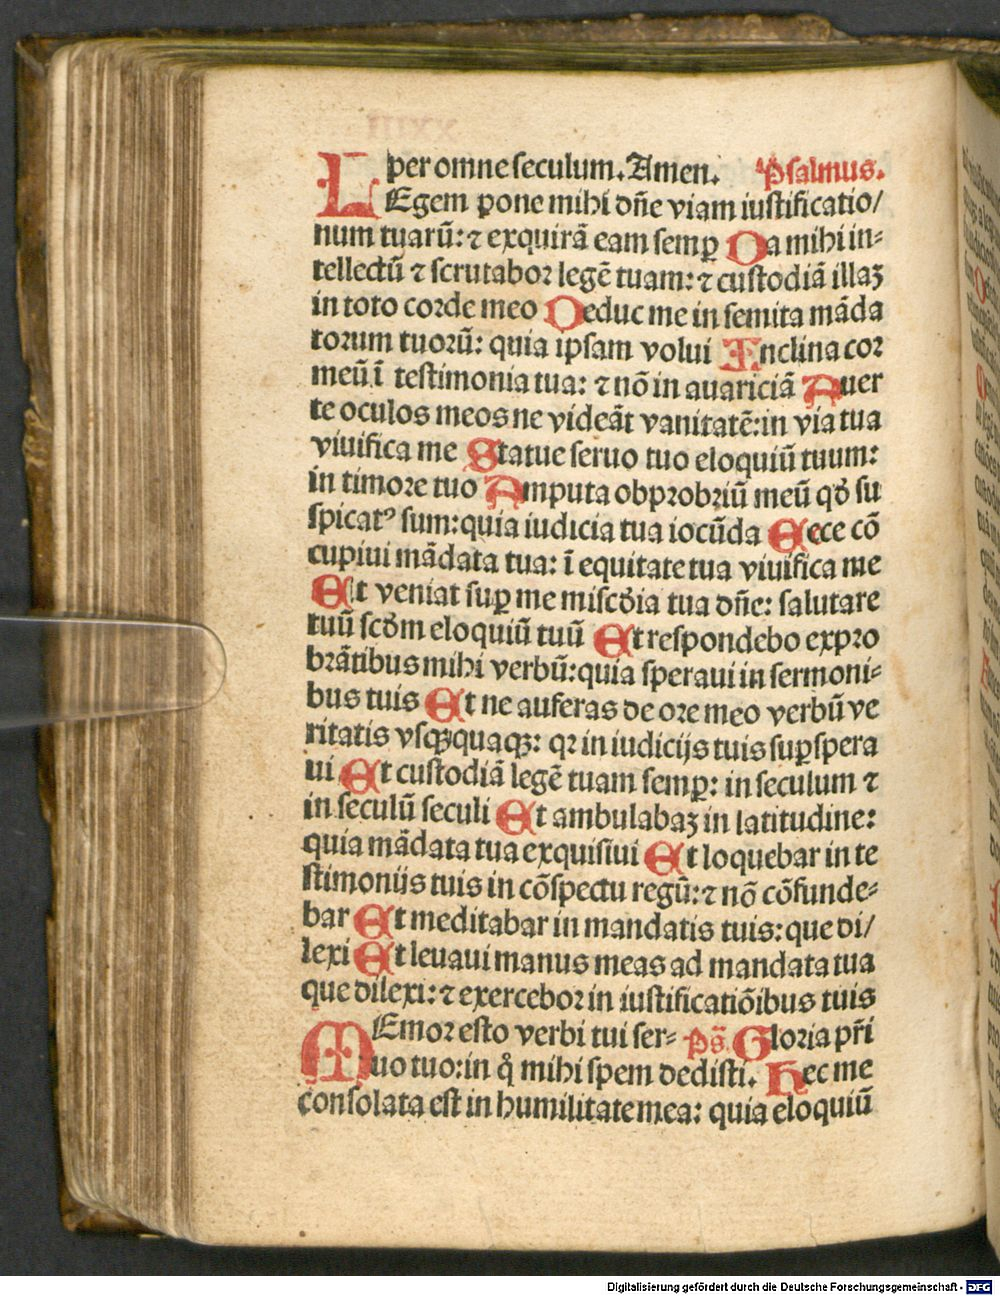 per omne seculum. Amen. Psalmus.
LEgem pone mihi dñe viam iustificatio/
num tuarũ: ⁊ exquirã eam semꝑ Da mihi in⸗
tellectũ ⁊ scrutabor legẽ tuam: ⁊ custodiã illaꝫ
in toto corde meo Deduc me in semita mãda
torum tuorũ: quia ipsam volui Inclina cor
meũ ĩ testimonia tua: ⁊ nõ in auariciã Auer
te oculos meos ne videãt vanitatẽ: in via tua
viuifica me Statue seruo tuo eloquiũ tuum:
in timore tuo Amputa obprobriũ meũ qð su
spicatꝰ sum: quia iudicia tua iocũda Ecce cõ
cupiui mãdata tua: ĩ equitate tua viuifica me
Et veniat suꝑ me miscðia tua dñe: salutare
tuũ scðm eloquiũ tuũ Et respondebo expro
brãtibus mihi verbũ: quia speraui in sermoni⸗
bus tuis Et ne auferas de ore meo verbũ ve
ritatis vsqꝫquaqꝫ: qꝛ in iudicijs tuis suꝑspera
ui Et custodiã legẽ tuam semꝑ: in seculum ⁊
in seculũ seculi Et ambulabaꝫ in latitudine:
quia mãdata tua exquisiui Et loquebar in te
stimoniis tuis in cõspectu regũ: ⁊ nõ cõfunde⸗
bar Et meditabar in mandatis tuis: que di/
lexi Et leuaui manus meas ad mandata tua
que dilexi: ⁊ exercebor in iustificatiõibus tuis
MEmor esto verbi tui ser⸗ p̃s̃ Gloria p̃ri
uo tuo: in q̊ mihi spem dedisti. Hec me
consolata est in humilitate mea: quia eloquiũ
Digitalisierung gefördert durch die Deutsche Forschungsgemeinschaft - DFG